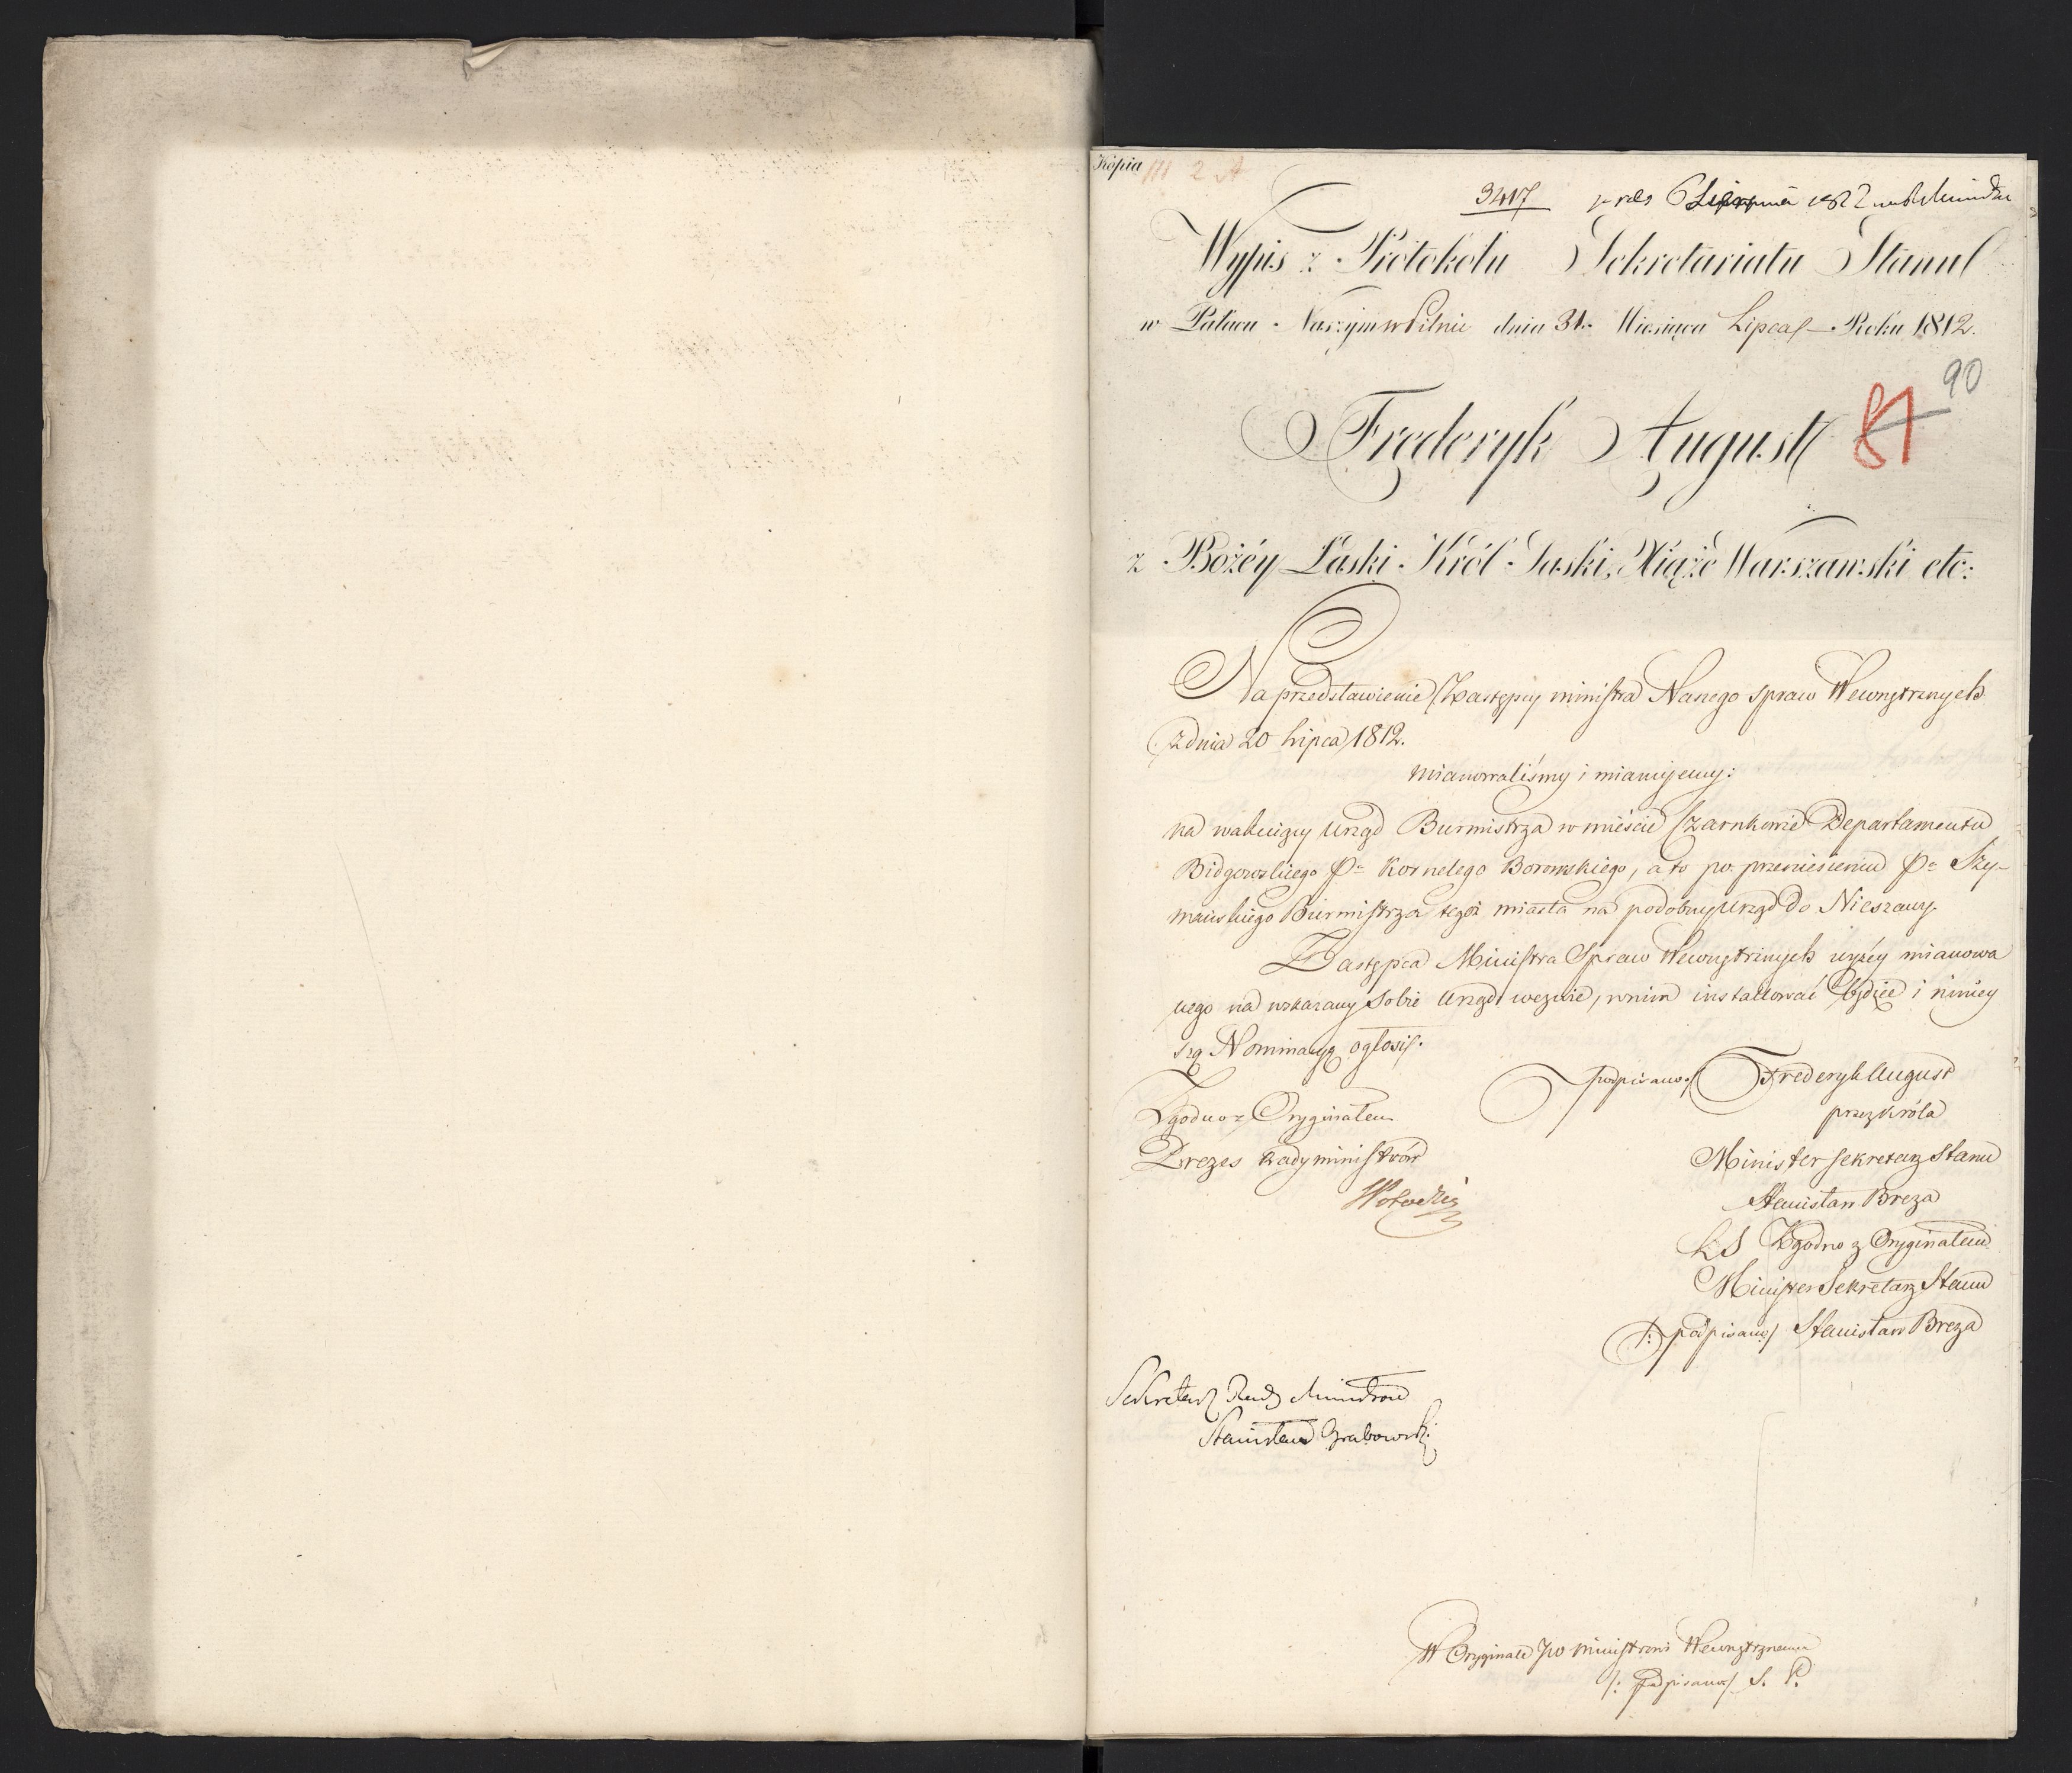 Kópia III 2 A
3417
Wypis z Protokołu Sekretariatu Stanu
w Pałacu Naszym w Pilnic dnia 31. Miesiąca Lipca Roku 1812.
90
81
Fryderyk August
z Bożéy Łaski Król Saski, Xiąże Warszawski etc:
Na przedstawienie Zastępcy ministra Naszego spraw Wewnętrznych
z dnia 20 Lipca 1812.
mianowaliśmy i mianujemy:
na wakuiący Urząd Burmistrza w mieście Czarnkowie Departamentu
Bidgowskiego Pa Kornelego Borowskiego, a to po przeniesieniu Pa Szy-
mańskiego Burmistrza tegoż miasta na podobny Urząd do Nieszawy.
Zastępca Ministra Spraw Wewnętrznych wyżéy mianowa
nego na wskazany sobie Urząd wezwie, w nim installować będzie i niniey
szą Nominacyą ogłosi.
podpisano/ Frederyk August
przez Króla
Minister Sekretarz Stanu
Stanisław Breza
LS Zgodno z Oryginałem
Minister Sekretarz Stanu
/: podpisano/ Stanisław Breza
Zgodno z Oryginałem
Prezes Rady ministrów
Sekretarz Rady Ministrów
Stanisław Grabowski
W Oryginale JW Ministrowi Wewnętrznemu
/: Podpisano/ S. P.